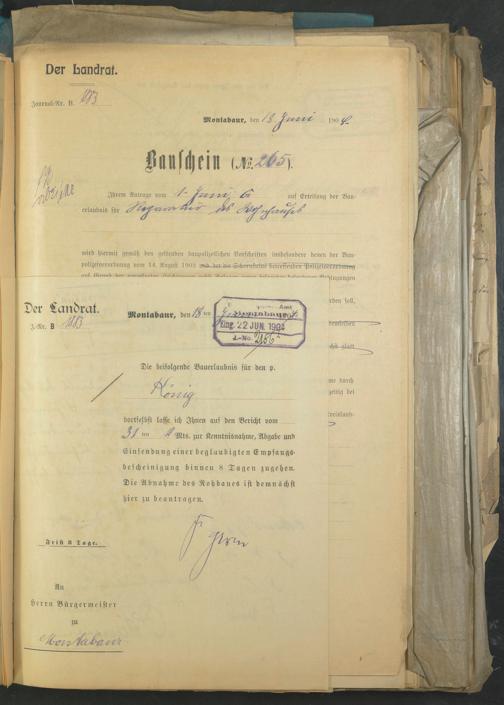 Der Landrat.
Journal-Nr. B. 1183
Montabaur, den 18 Juni 1904.
Bauschein (No. 265).
Ihrem Antrage vom 1. Juni auf Erteilung der Bau-
erlaubnis für Reparatur des Wohnhauses
wird hiermit gemäß den geltenden baupolizeilichen Vorschriften insbesondere denen der Bau-
polizeiverordnung vom 14. August 1903 und der die Schornsteine betreffenden Polizeiverordnung
Der Landrat.
J.-Nr. B 1183
Montabaur, den 18 ten
Amt
Eing. 22 JUN. 1904
J.-No. 2156
Die beifolgende Bauerlaubnis für den p.
König
dortselbst lasse ich Ihnen auf den Bericht vom
31 ten Mts. zur Kenntnisnahme, Abgabe und
Einsendung einer beglaubigten Empfangs-
bescheinigung binnen 8 Tagen zugehen.
Die Abnahme des Rohbaues ist demnächst
hier zu beantragen.
Frist 8 Tage.
An
Herrn Bürgermeister
zu
Montabaur